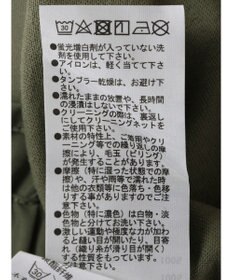 30
●蛍光増白剤が入っていない洗
剤を使用して下さい。
●アイロンは、軽く当てて下さ
い。
●タンブラー乾燥は、お避け下
さい。
●濡れたままの放置や、長時間
の浸漬はしないで下さい。
●クリーニングの際は、裏返し
にしてクリーニングネットを
使用して下さい。
●素材の特性上、ご着用やクリ
ーニング等での繰り返しの摩
擦により、毛玉（ピリング）
が発生することがあります。
●摩擦（特に湿った状態での摩
擦）や、汗や雨等で濡れた時
は他の衣類等に色落ち・色移
りする事が御座います。
●色物（特に濃色）は白物・淡
色物と分けてお洗い下さい。
●激しい運動や極度な力が加わ
ると縫い目が開いたり、目寄
れ（織り糸が滑り目が開く）
する性質をもっています。
30